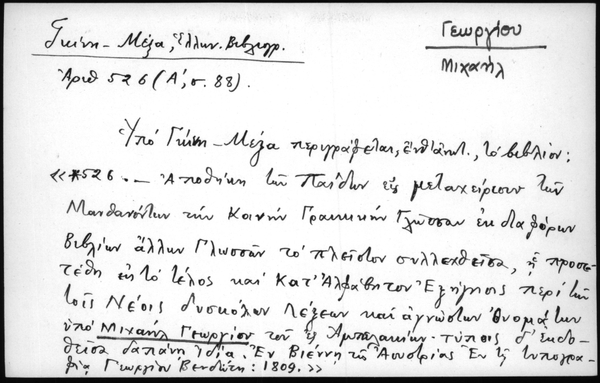 Γκίνη – Μέξα, Ἑλλην. Βιβλιογρ.
Γεωργίου
Μιχαήλ
Ἀριθ 526 (Α', σ. 88).
Ὑπό Γκίνη – Μέξα περιγράφεται, ἐνθ' ἀνωτ., τό βιβλίον:
«*526. – Ἀποθήκη τῶν Παίδων εἰς μεταχείρισιν τῶν
Μανθανόντων τήν Κοινήν Γραικικήν Γλῶσσαν ἐκ διαφόρων
Βιβλίων ἄλλων Γλωσσῶν τό πλεῖστον συλλεχθεῖσα, ᾗ προσε-
τέθη εἰς τό τέλος καί Κατ' Ἀλφάβητον Ἐξήγησις περί τῶν
τοῖς Νέοις δυσκόλων Λέξεων καί ἀγνώστων Ὀνομάτων
ὑπό Μιχαήλ Γεωργίου τοῦ ἐξ Ἀμπελακίων· τύποις δ' ἐκδο-
θεῖσα δαπάνῃ ἰδίᾳ. Ἐν Βιέννῃ τῆς Αουστρίας Ἐν τῇ τυπογρα-
φίᾳ Γεωργίου Βενδώτη: 1809.»